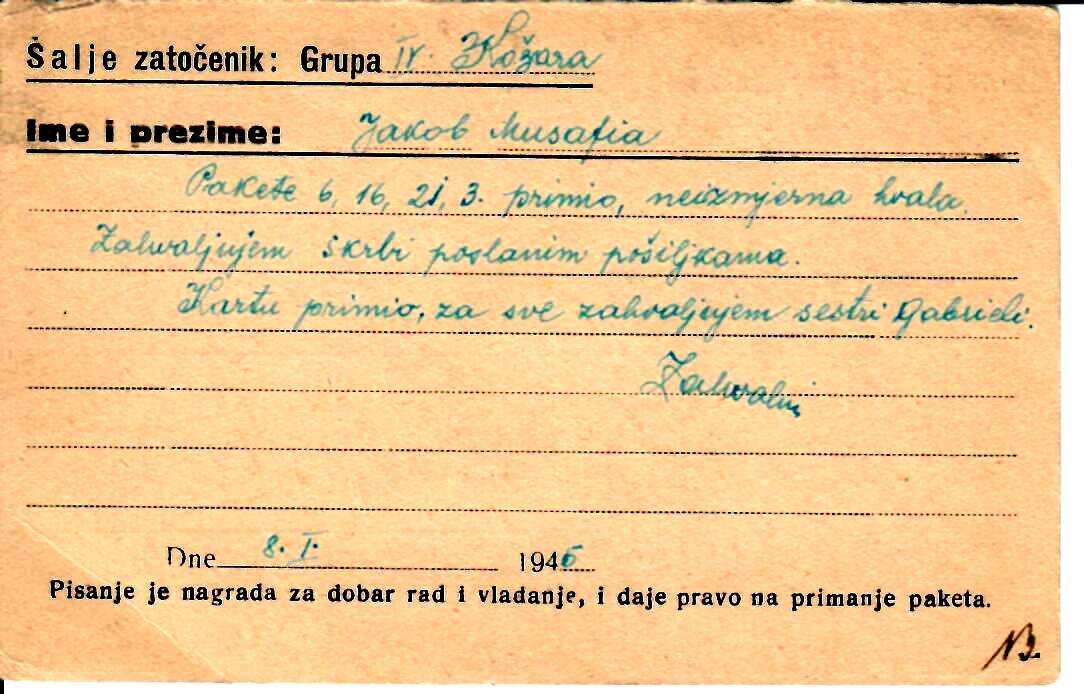 Šalje zatočenik: Grupa IV. Kožara
Ime i prezime: Jakob Musafia
Pakete 6, 16, 21, 3. primio, neizmjerna hvala.
Zahvaljujem skrbi poslanim pošiljkama.
Kartu primio, za sve zahvaljujem sestri Gabrieli.
Zahvalni
Dne 8. I. 1945
Pisanje je nagrada za dobar rad i vladanje, i daje pravo na primanje paketa.